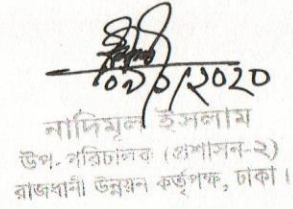 নাদিমুল ইসলাম
উপ-পরিচালক (প্রশাসন-২)
রাজধানী উন্নয়ন কর্তৃপক্ষ, ঢাকা।